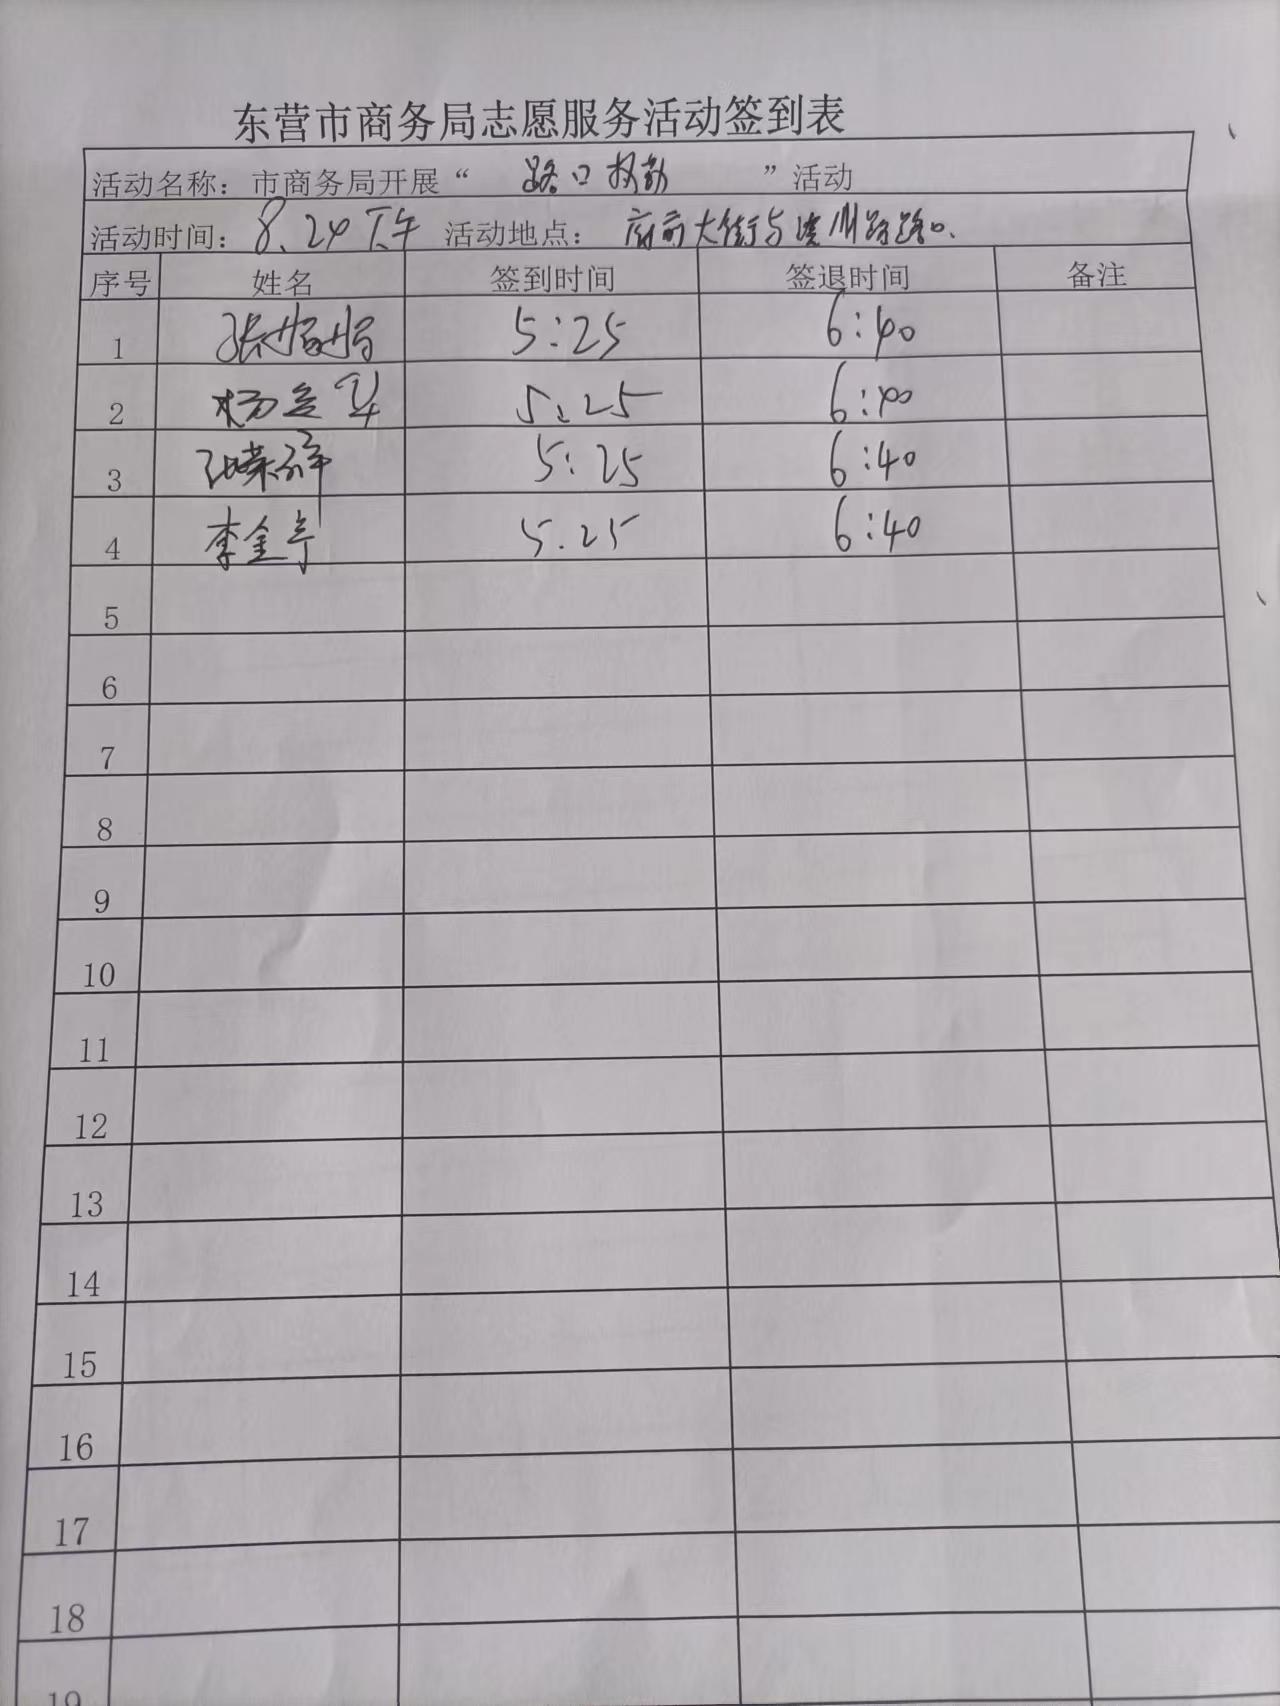 东营市商务局志愿服务活动签到表
活动名称：市商务局开展“ 路口执勤 ”活动
活动时间：8.24下午 活动地点：府前大街与 州路路口.
序号 姓名 签到时间 签退时间 备注
1 张 5:25 6:40
2 杨 5:25 6:40
3 张荣祥 5:25 6:40
4 李金亭 5.25 6:40
5
6
7
8
9
10
11
12
13
14
15
16
17
18
19